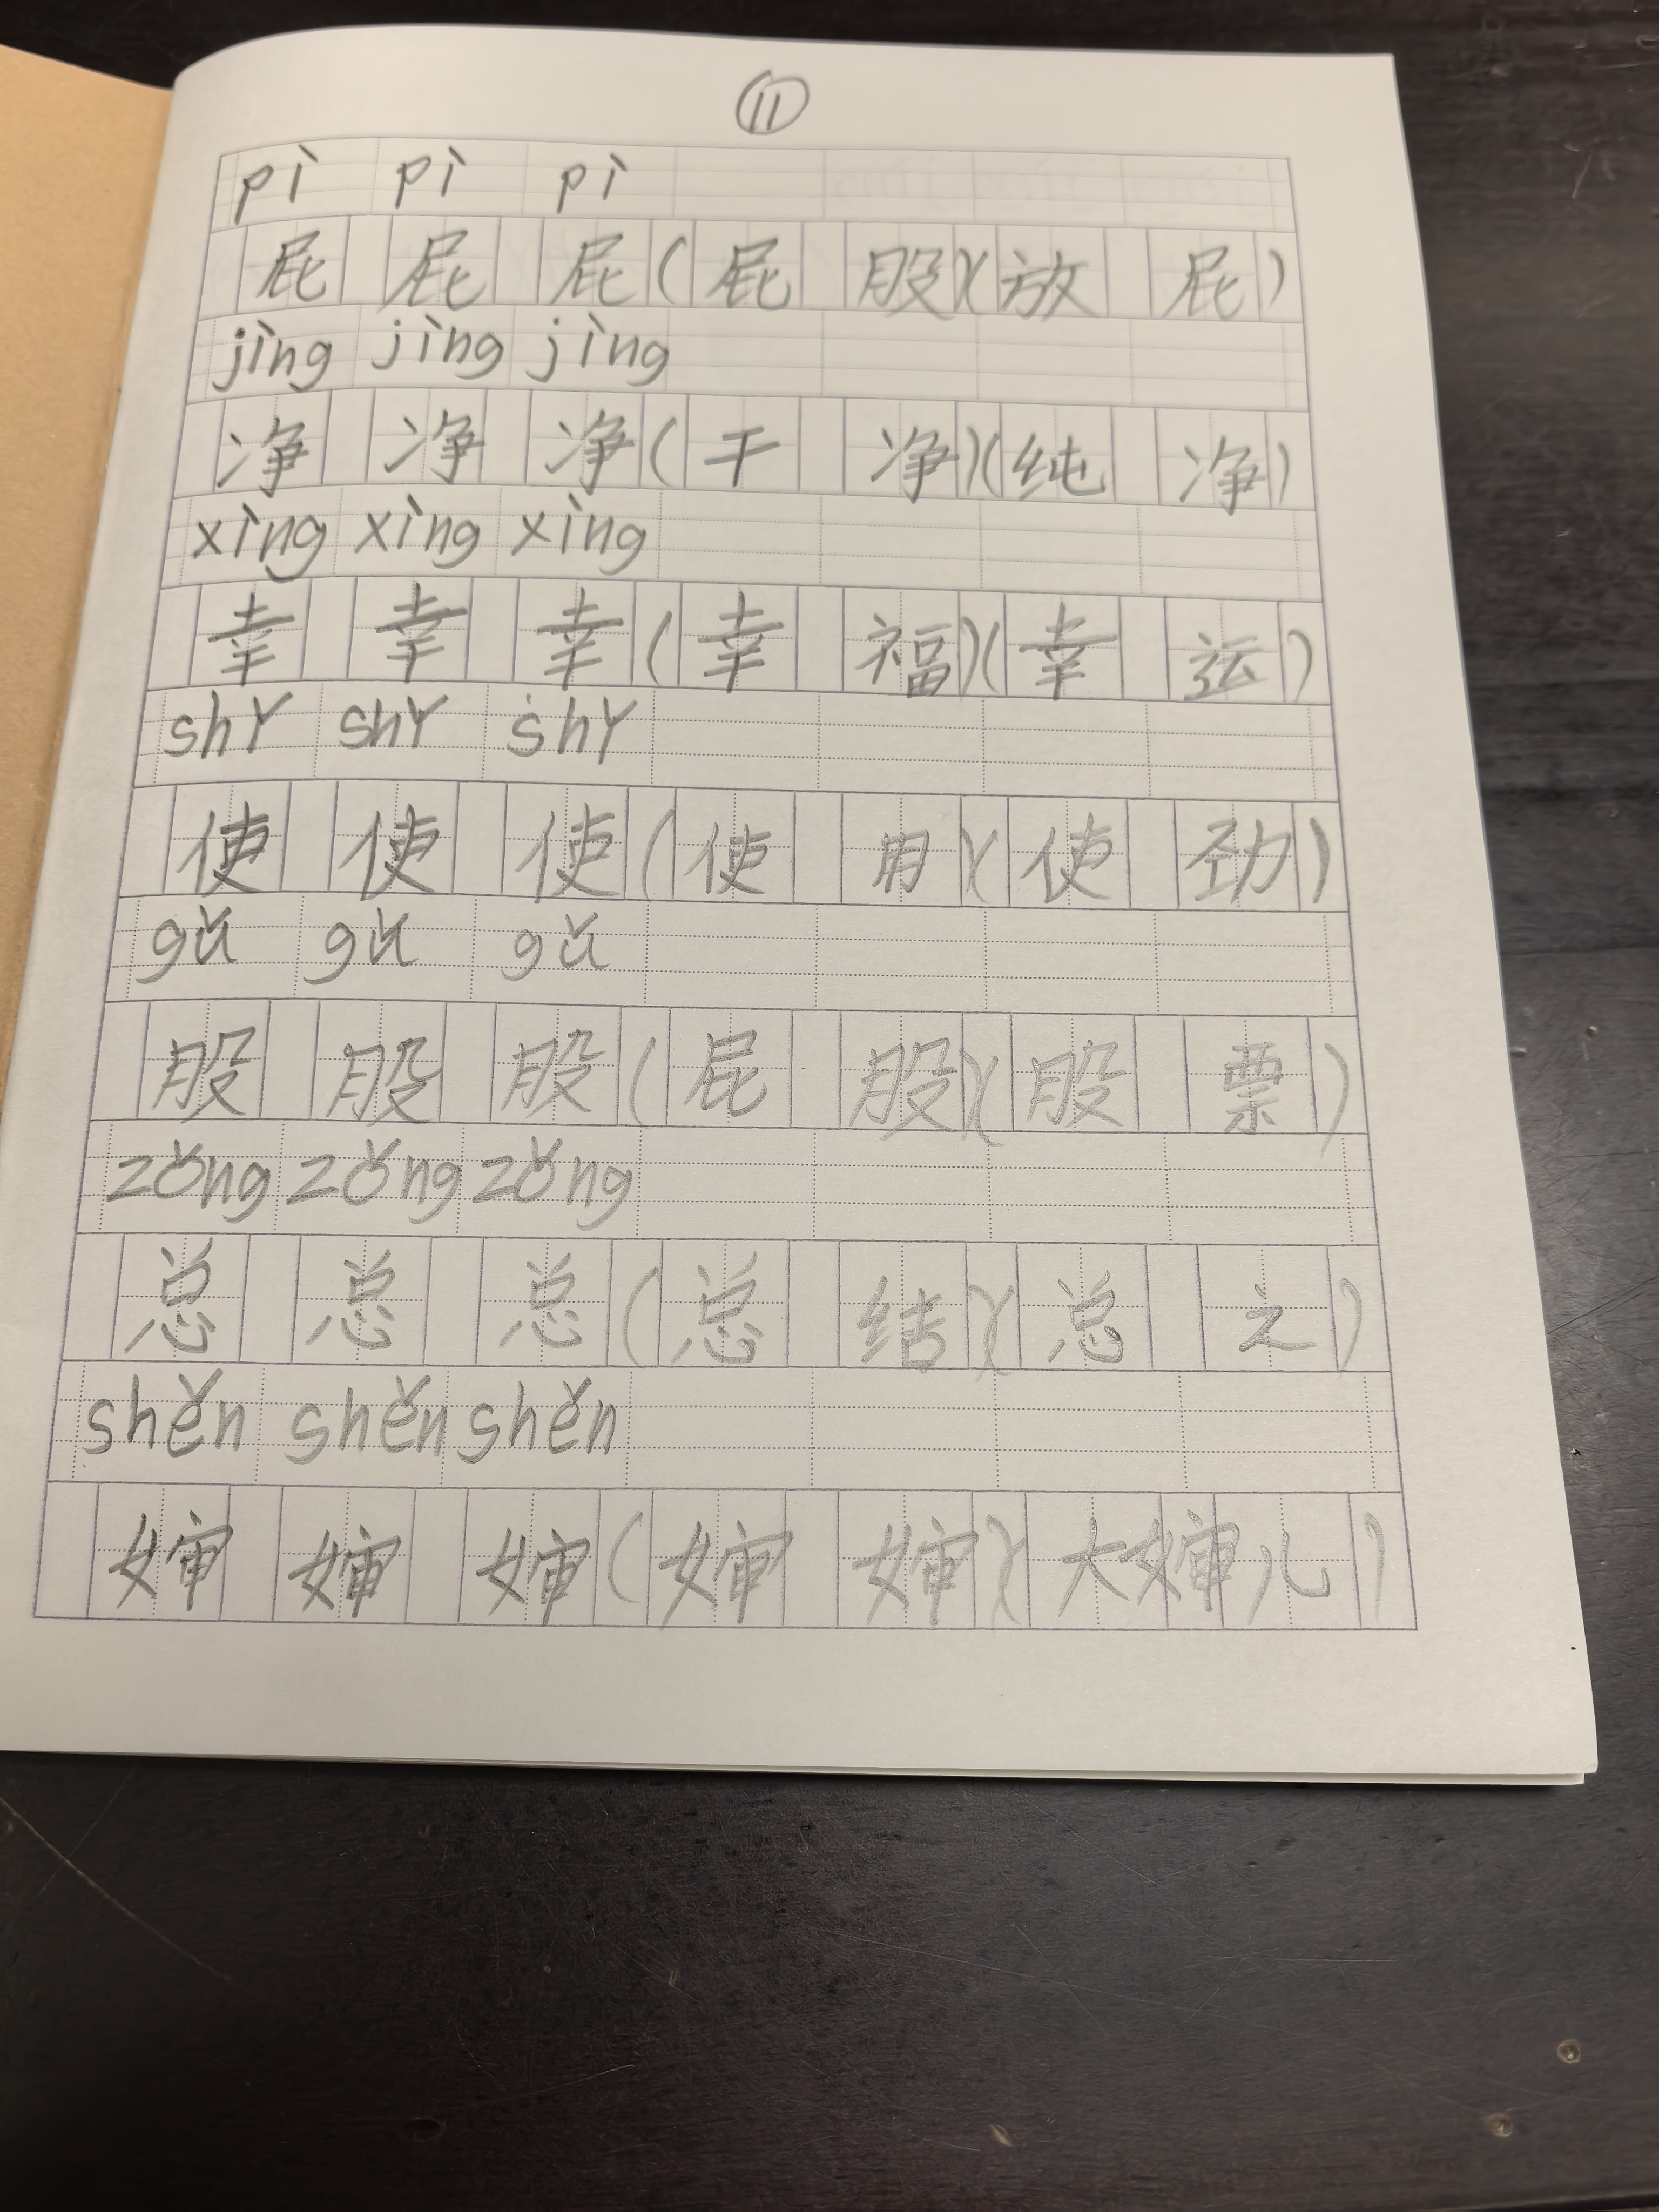 ⑪
pì pì pì
屁 屁 屁 (屁 股)(放 屁)
jìng jìng jìng
净 净 净 (干 净)(纯 净)
xìng xìng xìng
幸 幸 幸 (幸 福)(幸 运)
shǐ shǐ shǐ
使 使 使 (使 用)(使 劲)
gǔ gǔ gǔ
股 股 股 (屁 股)(股 票)
zǒng zǒng zǒng
总 总 总 (总 结)(总 之)
shěn shěn shěn
婶 婶 婶 (婶 婶)(大婶儿)